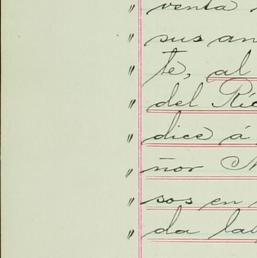 " venta
" sus an
" te, al
" del Rí
" dice á
" ñor
" sos en
" da la